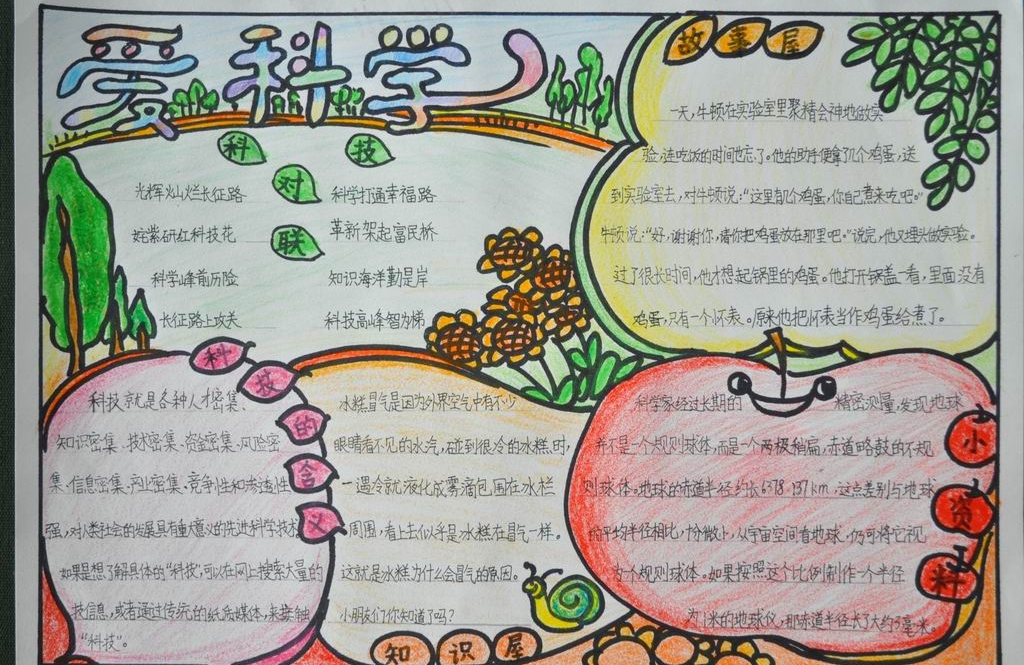 爱科学
科技对联
光辉灿烂长征路 科学打通幸福路
姹紫研红科技花 革新架起富民桥
科学峰前历险 知识海洋勤是岸
长征路上攻关 科技高峰智为梯
故事屋
一天,牛顿在实验室里聚精会神地做实
验,连吃饭的时间也忘了。他的助手便拿了几个鸡蛋,送
到实验室去,对牛顿说:“这里有几个鸡蛋,你自己煮来吃吧。”
牛顿说:“好,谢谢你,请你把鸡蛋放在那里吧。”说完,他又埋头做实验。
过了很长时间,他才想起锅里的鸡蛋。他打开锅盖一看,里面没有
鸡蛋,只有一个怀表。原来他把怀表当作鸡蛋给煮了。
科技的含义
科技就是各种人才密集、
知识密集、技术密集、资金密集、风险密
集、信息密集、产业密集、竞争性和渗透性
强,对人类社会的发展具有重大意义的先进科学技术
如果是想了解具体的“科技”,可以在网上搜索大量的
技信息,或者通过传统的纸质媒体,来接触
“科技”。
冰糕冒气是因为外界空气中有不少
眼睛看不见的水气,碰到很冷的冰糕时,
一遇冷就液化成雾滴包围在冰糕
周围,看上去似乎是冰糕在冒气一样。
这就是冰糕为什么会冒气的原因。
小朋友们你知道了吗?
知识屋
科学家经过长期的 精密测量,发现地球
并不是一个规则球体,而是一个两极稍扁,赤道略鼓的不规
则球体。地球的赤道半径约长6378.137km,这点差别与地球
的平均半径相比,十分微小,从宇宙空间看地球,仍可将它视
为一个规则球体。如果按照这个比例制作一个半径
为1米的地球仪,那赤道半径长了大约3毫米。
小资料